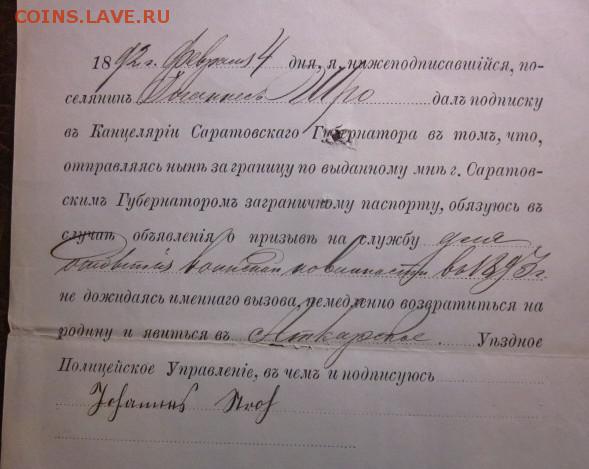 COINS.LAVE.RU
1892 г. Февраля 4 дня, я, нижеподписавшійся, по-
селянинъ Іоганнесъ Штро далъ подписку
въ Канцеляріи Саратовскаго Губернатора въ томъ, что,
отправляясь нынѣ за границу по выданному мнѣ г. Саратов-
скимъ Губернаторомъ заграничному паспорту, обязуюсь въ
случаѣ объявленія о призывѣ на службу для
отбытія воинской повинности въ 1893 г.
не дожидаясь именнаго вызова, немедленно возвратиться на
родину и явиться въ Аткарское Уѣздное
Полицейское Управленіе, въ чемъ и подписуюсь
Johannes